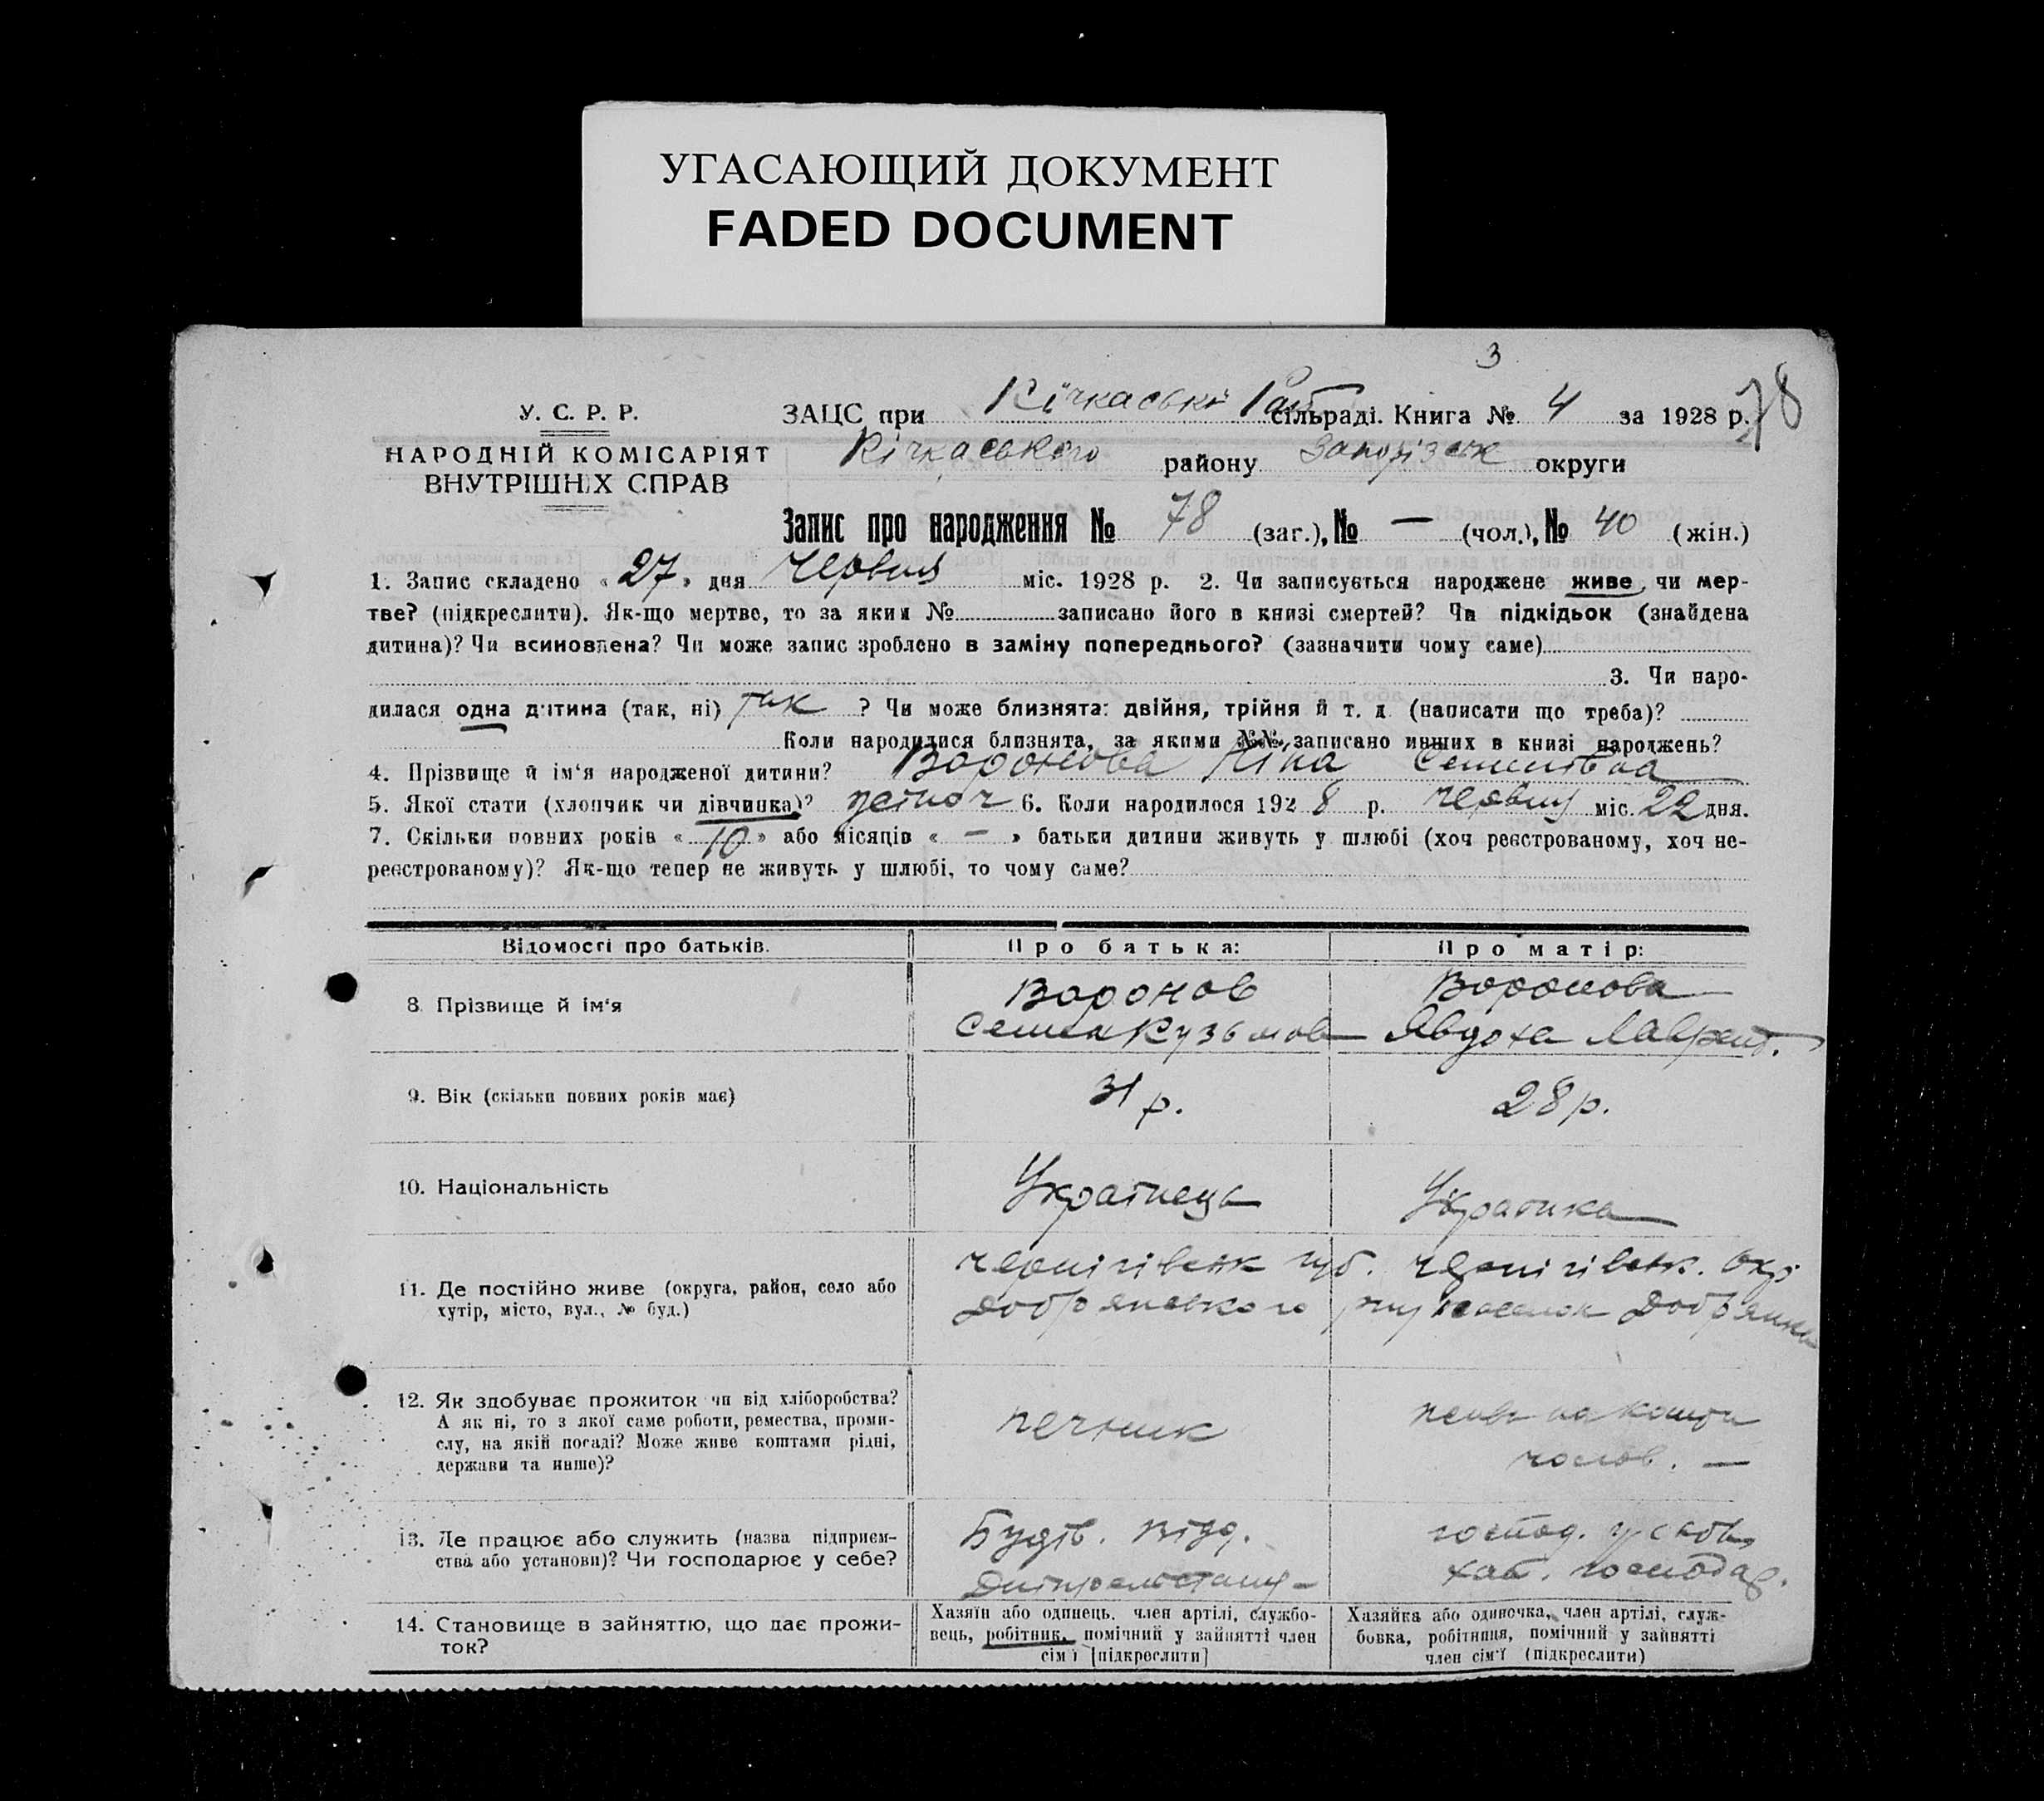 УГАСАЮЩИЙ ДОКУМЕНТ
FADED DOCUMENT
3
78
У. С. Р. Р.
НАРОДНІЙ КОМІСАРІЯТ
ВНУТРІШНІХ СПРАВ
ЗАЦС при Кічкаські Рай сільраді. Книга № 4 за 1928 р.
Кічкаського району Запорізськ округи
Запис про народження № 78 (заг.), № — (чол.), № 40 (жін.)
1. Запис складено « 27 » дня червня міс. 1928 р. 2. Чи записується народжене живе чи мер-
тве? (підкреслити). Як-що мертве, то за яким № записано його в книзі смертей? Чи підкідьок (знайдена
дитина)? Чи всиновлена? Чи може запис зроблено в заміну попереднього? (зазначити чому саме)
3. Чи наро-
дилася одна дитина (так, ні) так ? Чи може близнята: двійня, трійня й т. д (написати що треба)?
Коли народилися близнята, за якими №№ записано инших в книзі народжень?
4. Прізвище й ім'я народженої дитини? Воронова Ніна Семенівна
5. Якої стати (хлопчик чи дівчинка)? жіноч 6. Коли народилося 1928 р. червня міс. 22 дня.
7. Скільки повних років « 10 » або місяців « — » батьки дитини живуть у шлюбі (хоч реєстрованому, хоч не-
реєстрованому)? Як-що тепер не живуть у шлюбі, то чому саме?
Відомості про батьків. Про батька: Про матір:
8. Прізвище й ім'я
Воронов
Семен Кузьмов
Воронова
Явдоха Лаврент.
9. Вік (скільки повних років має) 31 р. 28 р.
10. Національність Українець Українка
11. Де постійно живе (округа, район, село або
хутір, місто, вул., № буд.)
Чернігівськ губ. Чернігівськ. окр.
Добрянського Добрянка
12. Як здобуває прожиток чи від хліборобства?
А як ні, то з якої саме роботи, ремества, проми-
слу, на якій посаді? Може живе коштами рідні,
держави та инше)?
печник
живе на кошти
чолов. —
13. Де працює або служить (назва підприєм-
ства або установи)? Чи господарює у себе?
Будів. відд.
Дніпрельстану
господ. у своїм
хат. господар.
14. Становище в зайняттю, що дає прожи-
ток?
Хазяїн або одинець, член артілі, службо-
вець, робітник, помічний у зайнятті член
сім'ї [підкреслити]
Хазяйка або одиночка, член артілі, служ-
бовка, робітниця, помічний у зайнятті
член сім'ї (підкреслити)